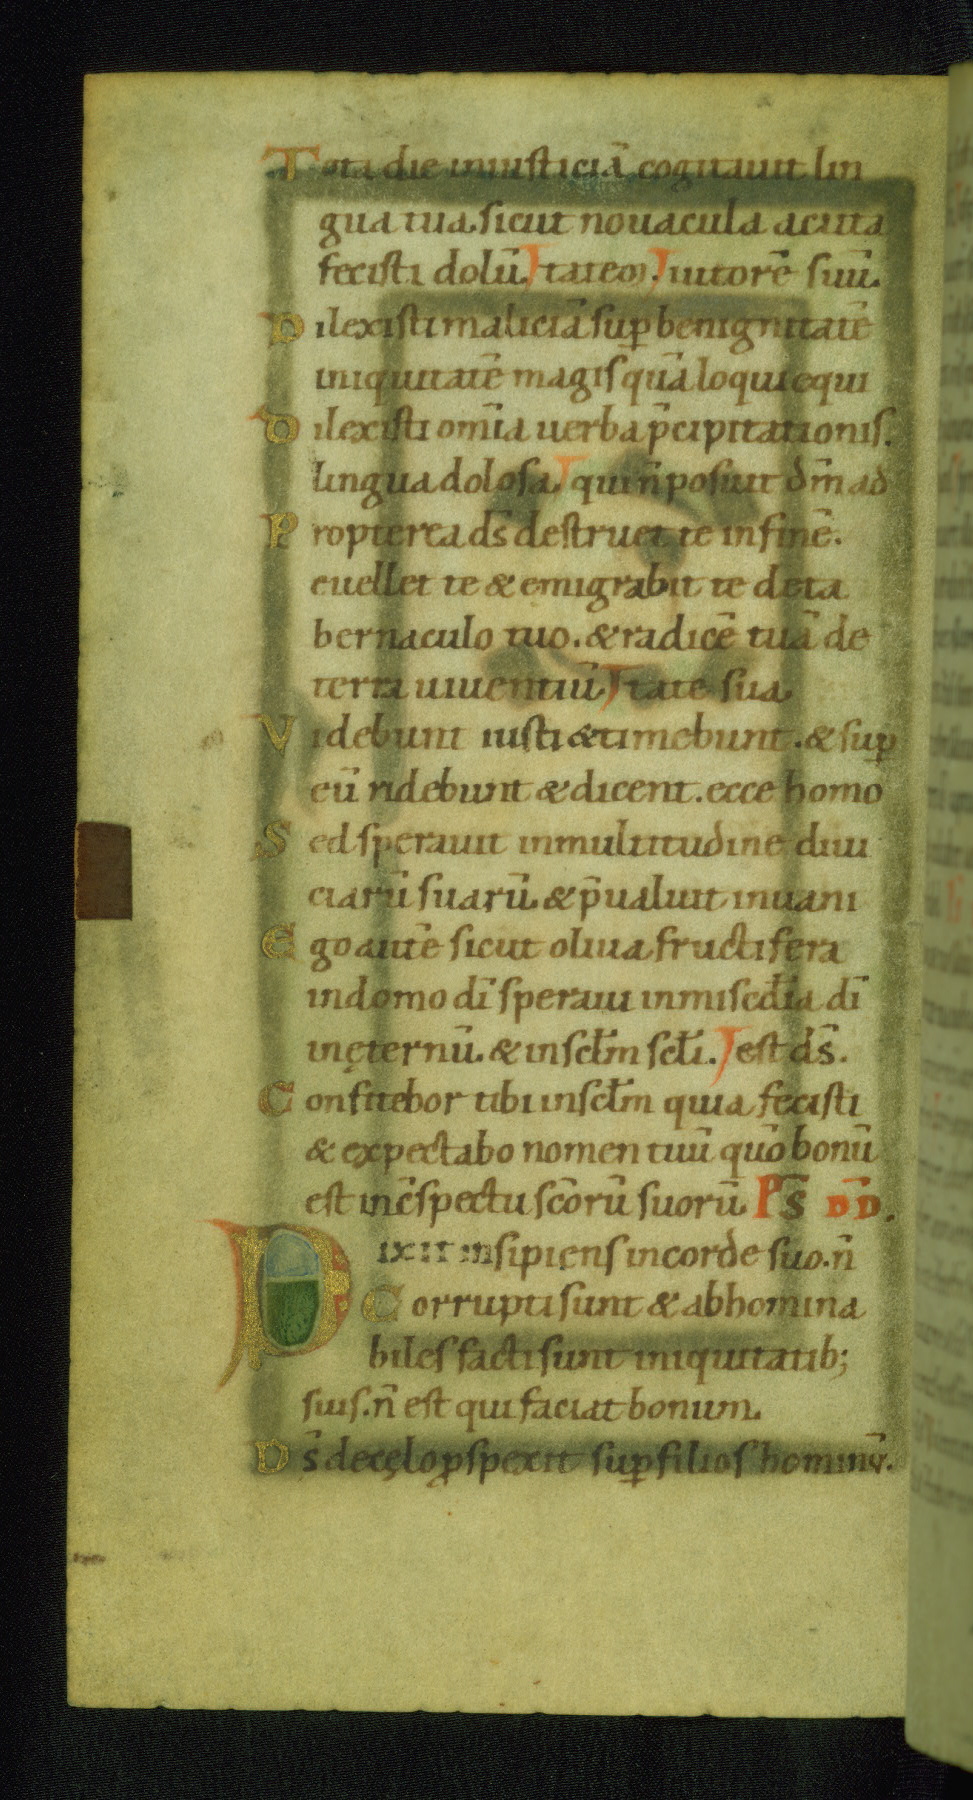 Tota die iniusticiā cogitauit lin
gua tua. sicut nouacula acuta
fecisti dolū. tateō. iutorē suū.
Dilexisti maliciā suꝑ benignitatē
iniquitatē magis quā loqui equi
Dilexisti om̄ia uerba p̄cipitationis.
lingua dolosa. qui n̄ posuit dm̄ ad
Propterea ds̄ destruet te in finē.
euellet te & emigrabit te de ta
bernaculo tuo. & radicē tuā de
terra uiuentiū. tate sua.
Videbunt iusti & timebunt. & suꝑ
eū ridebunt & dicent. ecce homo
Sed sperauit in multitudine diui
ciarū suarū. & p̄ualuit in uani
Ego autē sicut oliua fructifera
in domo dī speraui in misedīa dī
in ęternū. & in scl̄m scl̄i. est ds̄.
Confitebor tibi in scl̄m quia fecisti
& expectabo nomen tuū quō bonū
est in c̄spectu sc̄orū suorū. PS̄ DD̄.
Dixit insipiens in corde suo. n̄
Corrupti sunt & abhomina
biles facti sunt iniquitatib;
suis. n̄ est qui faciat bonum.
Ds̄ de cęlo ꝓspexit suꝑ filios hominū.